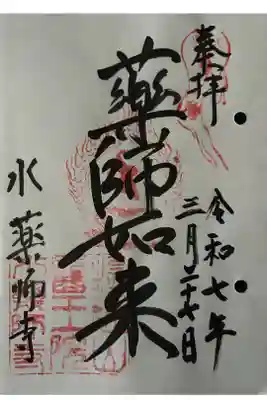 奉拝
令和七年
三月二十七日
藥師如来
水薬師寺